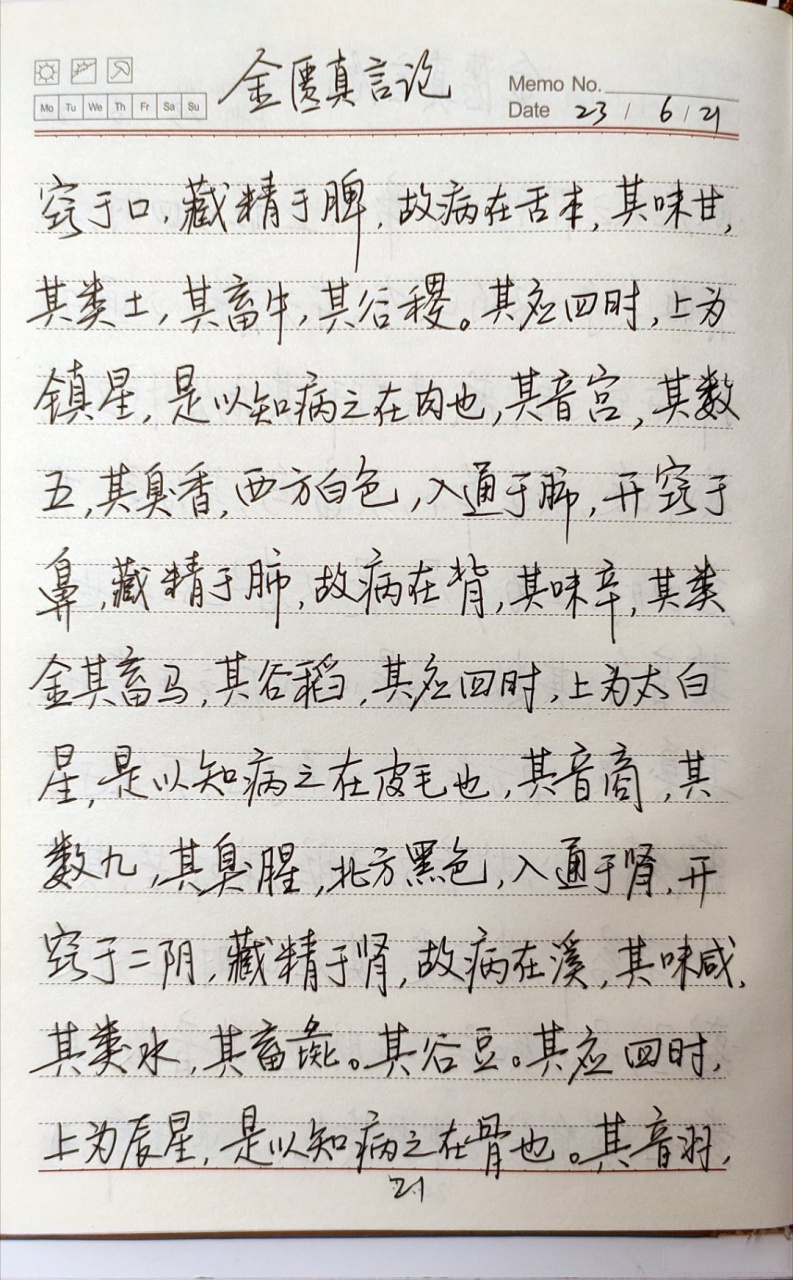 金匮真言论
Memo No.
Mo Tu We Th Fr Sa Su
Date 23 / 6 / 21
窍于口,藏精于脾,故病在舌本,其味甘,
其类土,其畜牛,其谷稷。其应四时,上为
镇星,是以知病之在肉也,其音宫,其数
五,其臭香,西方白色,入通于肺,开窍于
鼻,藏精于肺,故病在背,其味辛,其类
金其畜马,其谷稻,其应四时,上为太白
星,是以知病之在皮毛也,其音商,其
数九,其臭腥,北方黑色,入通于肾,开
窍于二阴,藏精于肾,故病在溪,其味咸,
其类水,其畜彘。其谷豆。其应四时,
上为辰星,是以知病之在骨也。其音羽,
21